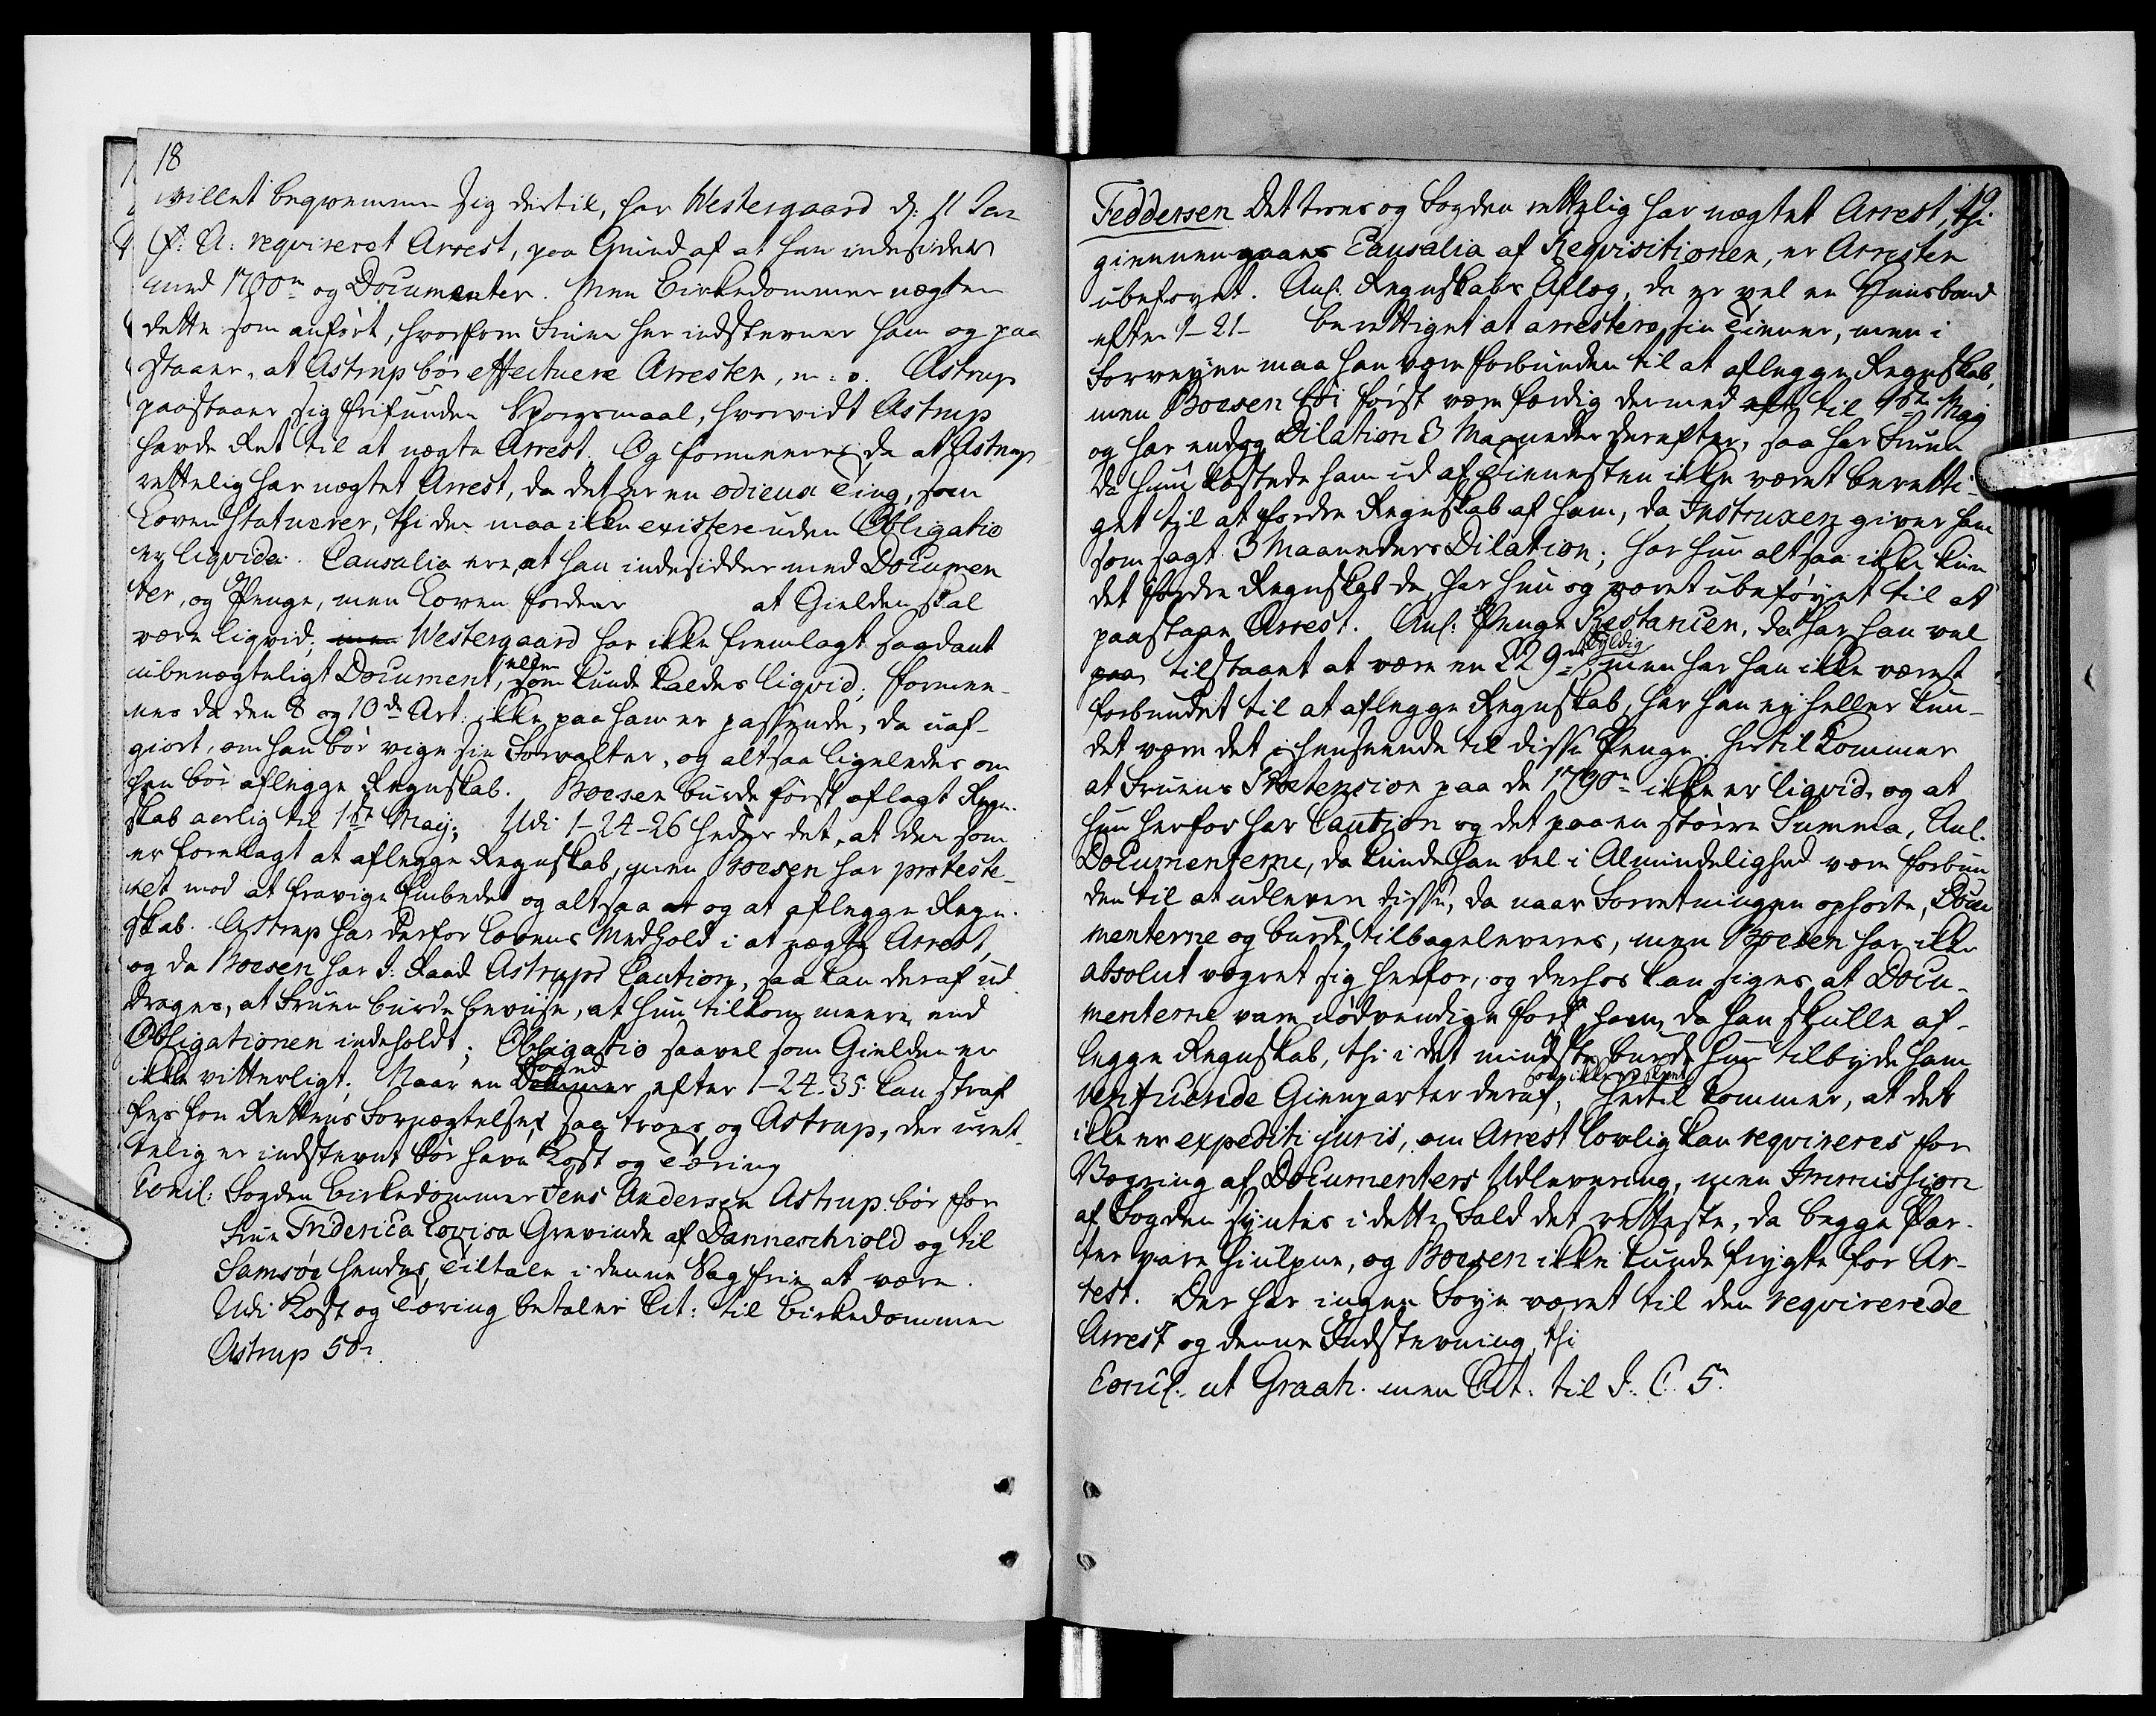 18
villet beqvemme sig dertil, har Westergaard d: 11 Jan
f: A: reqvireret Arrest, paa Grund af at han indesidder
med 1790rd og Documenter. Men Birkedommer nægter
dette som anført, hvorfor Fruen her indstevner ham og paa
staaer, at Astrup bør effectuere Arresten, m. v. Astrup
paastaaer sig frifunden Spørgsmaal, hvorvidt Astrup
havde Ret til at nægte Arrest. Og formeenes da at Astrup
rettelig har nægtet Arrest, da det er en odieux Ting, som
Loven statuerer, thi den maa ikke existere uden Obligatio
er liqvida. Causalia ere, at han indesidder med Documen
ter, og Penge, men Loven fordrer at Gielden skal
være liqvid; men Westergaard har ikke fremlagt saadant
ubenægteligt Document, eller som kunde kaldes liqvid; formee-
nes da den 8 og 10de Art: ikke paa ham er passende, da uaf-
giort, om han bør vige sin Forvalter, og altsaa ligeledes om
han bør aflegge Regnskab. Boesen burde først aflagt Regn-
skab aarlig til 1st Maij; Udi 1-24-26 heder det, at den som
er forelagt at aflegge Regnskab, men Boesen har proteste-
ret mod at fravige Embedet og altsaa at og at aflegge Regn-
skab. Astrup har derfor Lovens Medhold i at nægte Arrest,
og da Boesen har J: Raad Astrups Caution, saa kan deraf ud
drages, at Fruen burde beviise, at hun tilkom meere end
Obligationen indeholdt; Obligatio saavel som Gielden er
ikke vitterligt. Naar en Dommer Foged efter 1-24-35 kan straf
fes for Rettens Fornægtelse, saa troes og Astrup, der uret-
telig er indstevnt bør have Kost og Tæring
Concl: Fogden Birkedommer Jens Andersen Astrup bør for
Frue Friderica Lovisa Grevinde af Danneschiold og til
Samsøe hendes Tiltale i denne Sag frie at være.
Udi Kost og Tæring betaler Cit: til Birkedommer
Astrup 50rd.
19
Feddersen Det troes og Fogden rettelig har nægtet Arrest, thi
giennemgaaes Causalia af Reqvisitionen, er Arresten
ubeføyet. Anl: Regnskabs Aflæg, da er vel en Huusbond
efter 1-21- berettiget at arrestere sin Tiener, men i
Forveyen maa han være forbunden til at aflegge Regnskab,
men Boesen bør først være færdig dermed eft til 1ste Maj
og har endog Dilation 3 Maaneder derefter, saa har Fruen
da hun kastede ham ud af Tienesten ikke været beretti-
get til at fordre Regnskab af ham, da Instruxen giver ham
som sagt 3 Maaneders Dilation; har hun altsaa ikke kun
det fordre Regnskab da har hun og været ubeføyet til at
paastaae Arrest. Anl: Penge Restancen, da har han vel
paa tilstaaet at være en 229rd skyldig men har han ikke været
forbundet til at aflegge Regnskab, har han ey heller kun-
det være det i henseende til disse Penge. Hertil kommer
at Fruens Prætension paa de 1790rd ikke er liqvid, og at
hun herfor har Caution og det paa en større Summa, Anl.
Documenterne, da kunde han vel i Almindelighed være forbun
den til at udlevere disse, da naar Forretningen ophørte, Docu
menterne og burde tilbageleveres, men Boesen har ikke
absolut vægret sig herfor, og derhos kan siges at Docu-
menterne vare nødvendige for ham, da han skulle af-
legge Regnskab, thi i det mindste burde hun tilbyde ham
verificerede Gienparter deraf, som ikke er skeet Hertil kommer, at det
ikke er expediti juris, om Arrest lovlig kan reqvireres for
Vægring af Documenters Udlevering, men Immission
af Fogden syntes i dette Fald det retteste, da begge Par-
ter vare hiulpne, og Boesen ikke kunde frygte for Ar-
rest. Der har ingen Føye været til den reqvirerede
Arrest og denne Indstevning, thi
Concl. ut Graah. men Cit: til J: C. 5rd